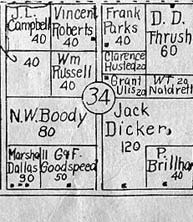 J.L.
Campbell
40
Vincent
Roberts
40
Frank
Parks
40
D. D.
Thrush
60
40
Wm
Russell
40
Clarence
Husted 20
Grant
Ulis 20
WT 20
Naldrett
34
N.W. Boody
80
Jack
Dicker,
120
Marshall
Dallas
90
G&F.
Goodspeed
50
P.
Brillhar
40